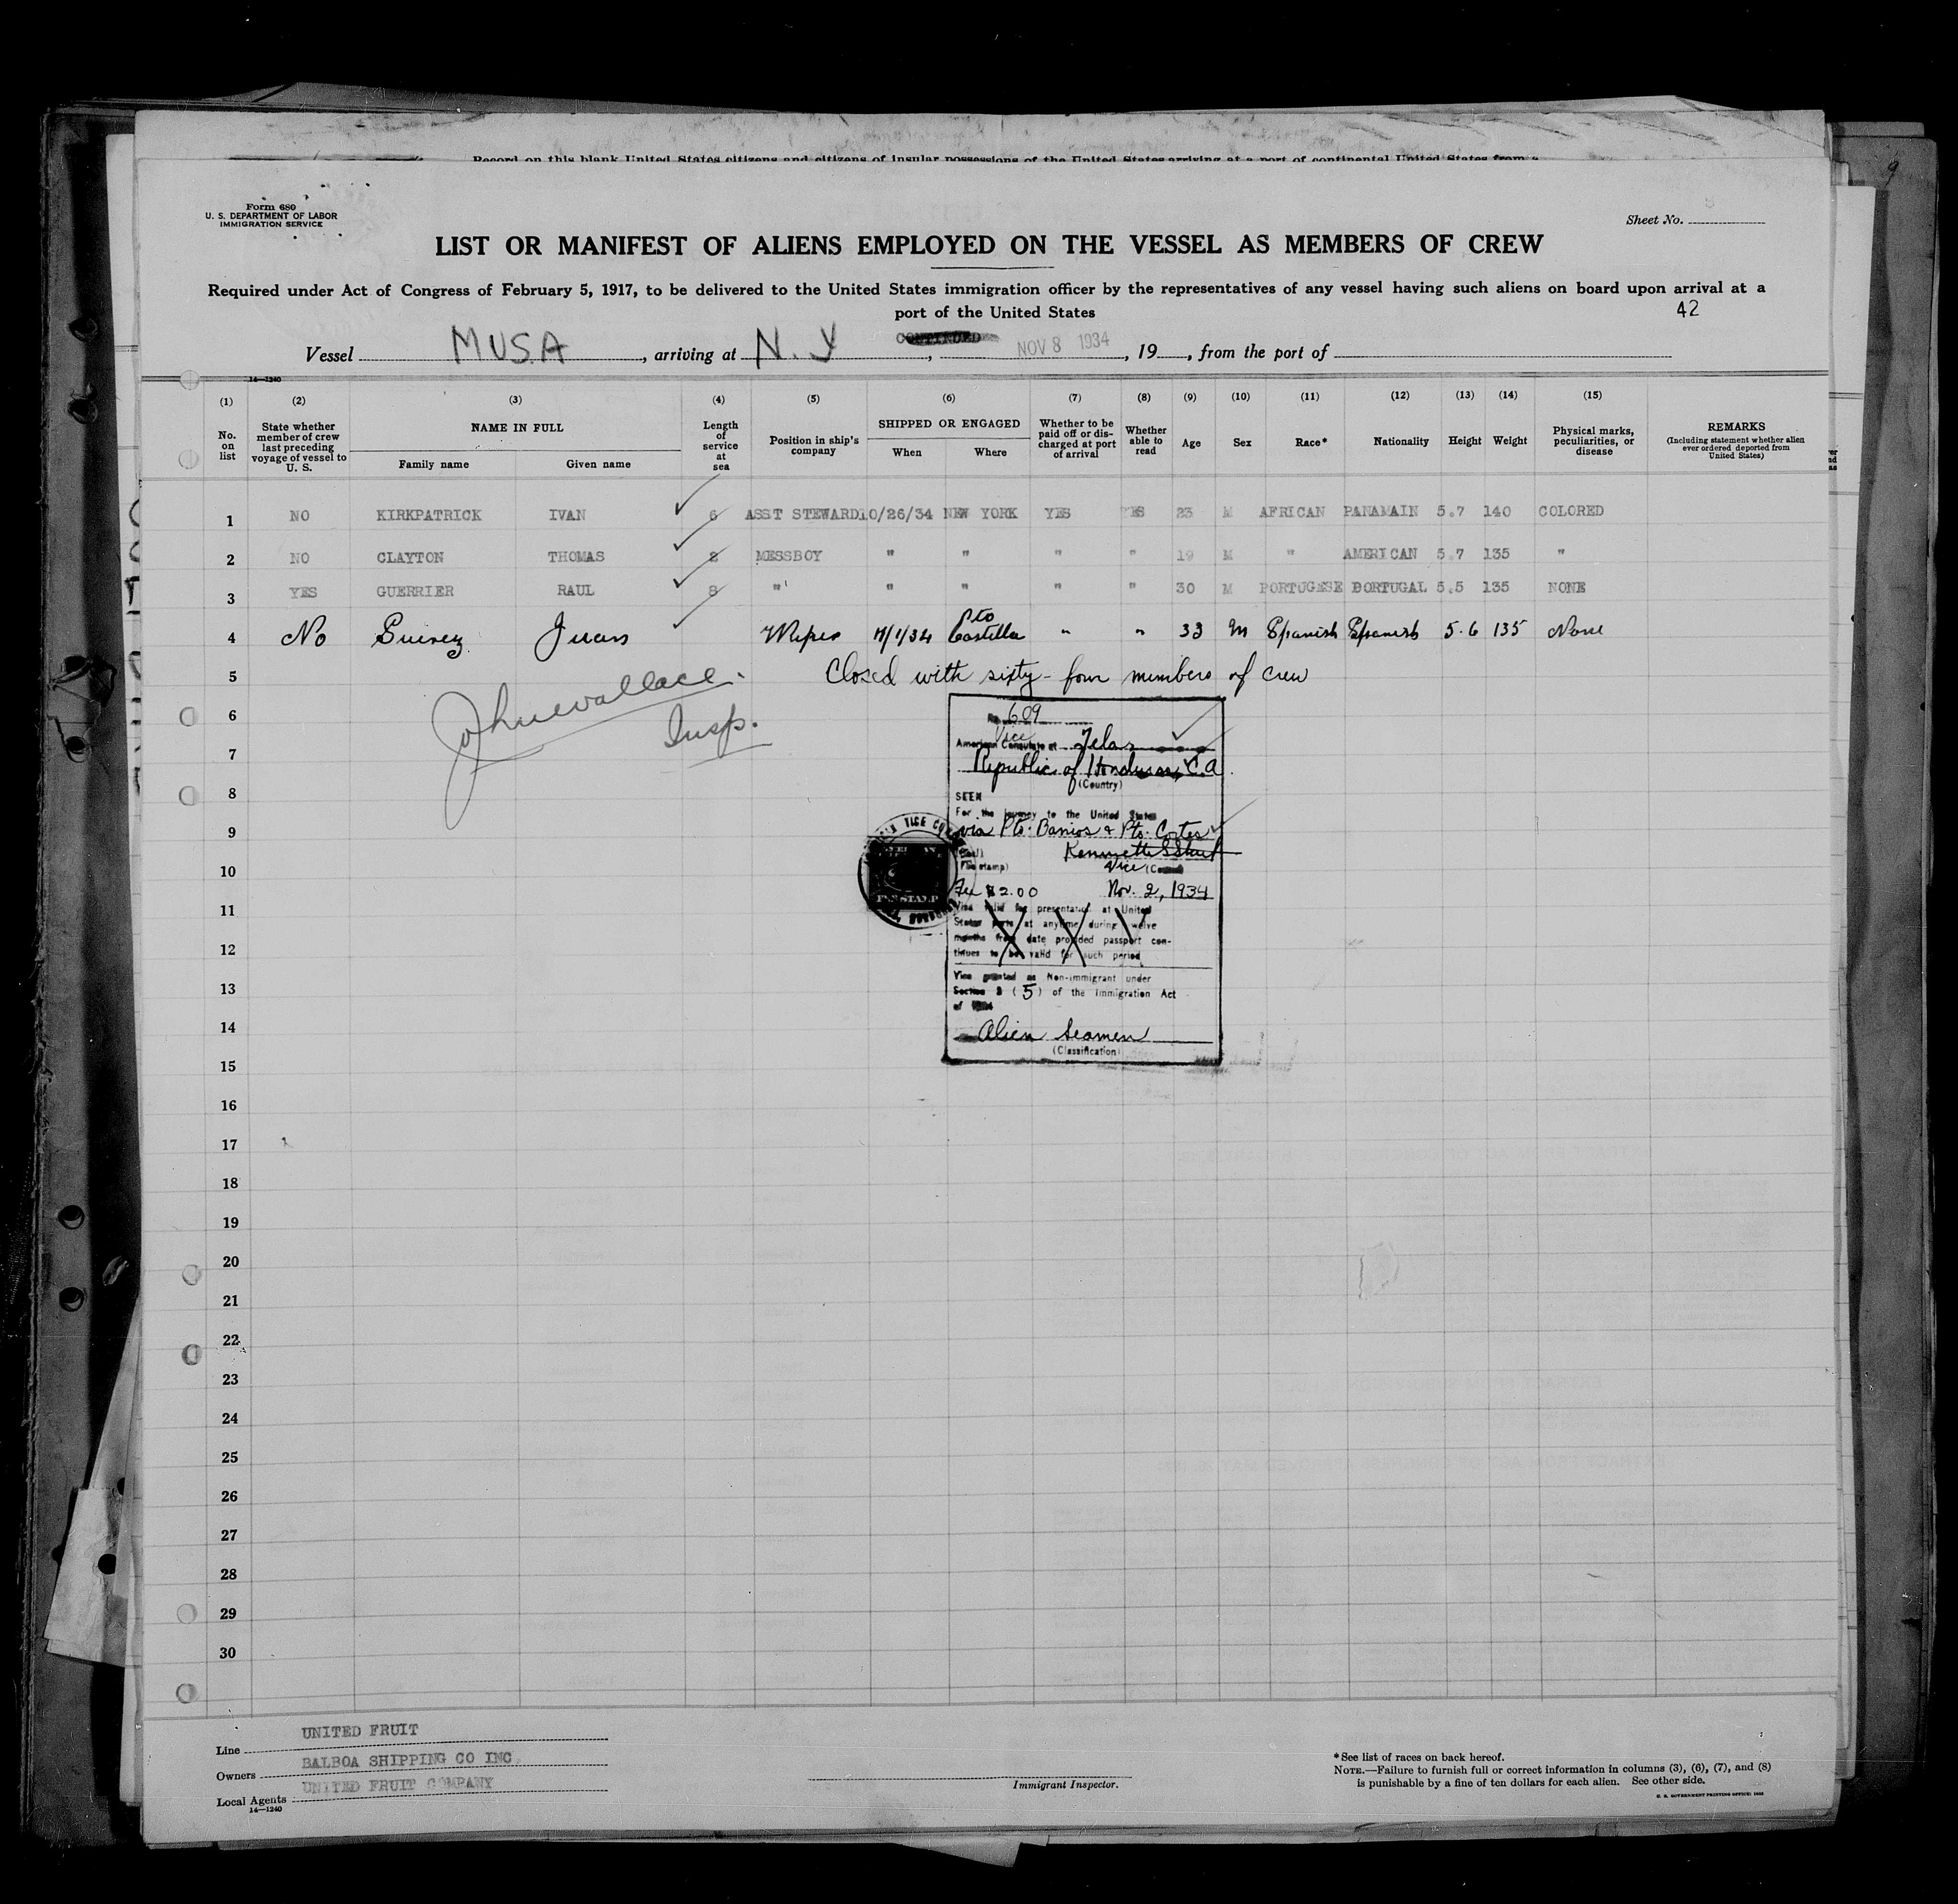 Record on this blank United States citizens and citizens of insular possessions of the United States arriving at a port of continental United States from a
Form 680
U. S. DEPARTMENT OF LABOR
IMMIGRATION SERVICE
Sheet No.
LIST OR MANIFEST OF ALIENS EMPLOYED ON THE VESSEL AS MEMBERS OF CREW
Required under Act of Congress of February 5, 1917, to be delivered to the United States immigration officer by the representatives of any vessel having such aliens on board upon arrival at a
port of the United States
42
CONTINUED
Vessel MUSA, arriving at N. Y, NOV 8 1934, 19, from the port of
14—1240
(1) (2) (3) (4) (5) (6) (7) (8) (9) (10) (11) (12) (13) (14) (15)
No. on list
State whether member of crew last preceding voyage of vessel to U. S.
NAME IN FULL
Family name Given name
Length of service at sea
Position in ship's company
SHIPPED OR ENGAGED
When Where
Whether to be paid off or discharged at port of arrival
Whether able to read
Age
Sex
Race*
Nationality
Height
Weight
Physical marks, peculiarities, or disease
REMARKS
(Including statement whether alien ever ordered deported from United States)
1 NO KIRKPATRICK IVAN 6 ASST STEWARD 10/26/34 NEW YORK YES YES 23 M AFRICAN PANAMAIN 5.7 140 COLORED
2 NO CLAYTON THOMAS 2 MESSBOY " " " " 19 M " AMERICAN 5.7 135 "
3 YES GUERRIER RAUL 8 " " " " " 30 M PORTUGESE PORTUGAL 5.5 135 NONE
4 No Juan Wiper 11/1/34 Pto Castilla " " 33 M Spanish Spanish 5.6 135 None
5 Closed with sixty-four members of crew
John Wallace.
Insp.
6
7
8
9
10
11
12
13
14
15
16
17
18
19
20
21
22
23
24
25
26
27
28
29
30
No. 609
Vice
American Consulate at Tela
Republic of Honduras, C.A.
(Country)
SEEN
For the journey to the United States
via Pto. Barrios & Pto. Cortes
(Seal)
(Fee stamp) Vice (Consul)
Fee $2.00 Nov. 2, 1934
Visa valid for presentation at United
States ports at anytime during twelve
months from date provided passport con-
tinues to be valid for such period
Visa granted as Non-immigrant under
Section 3 (5) of the Immigration Act
of 1924
Alien Seamen
(Classification)
Line UNITED FRUIT
Owners BALBOA SHIPPING CO INC.
Local Agents UNITED FRUIT COMPANY
14—1240
Immigrant Inspector.
*See list of races on back hereof.
NOTE.—Failure to furnish full or correct information in columns (3), (6), (7), and (8)
is punishable by a fine of ten dollars for each alien. See other side.